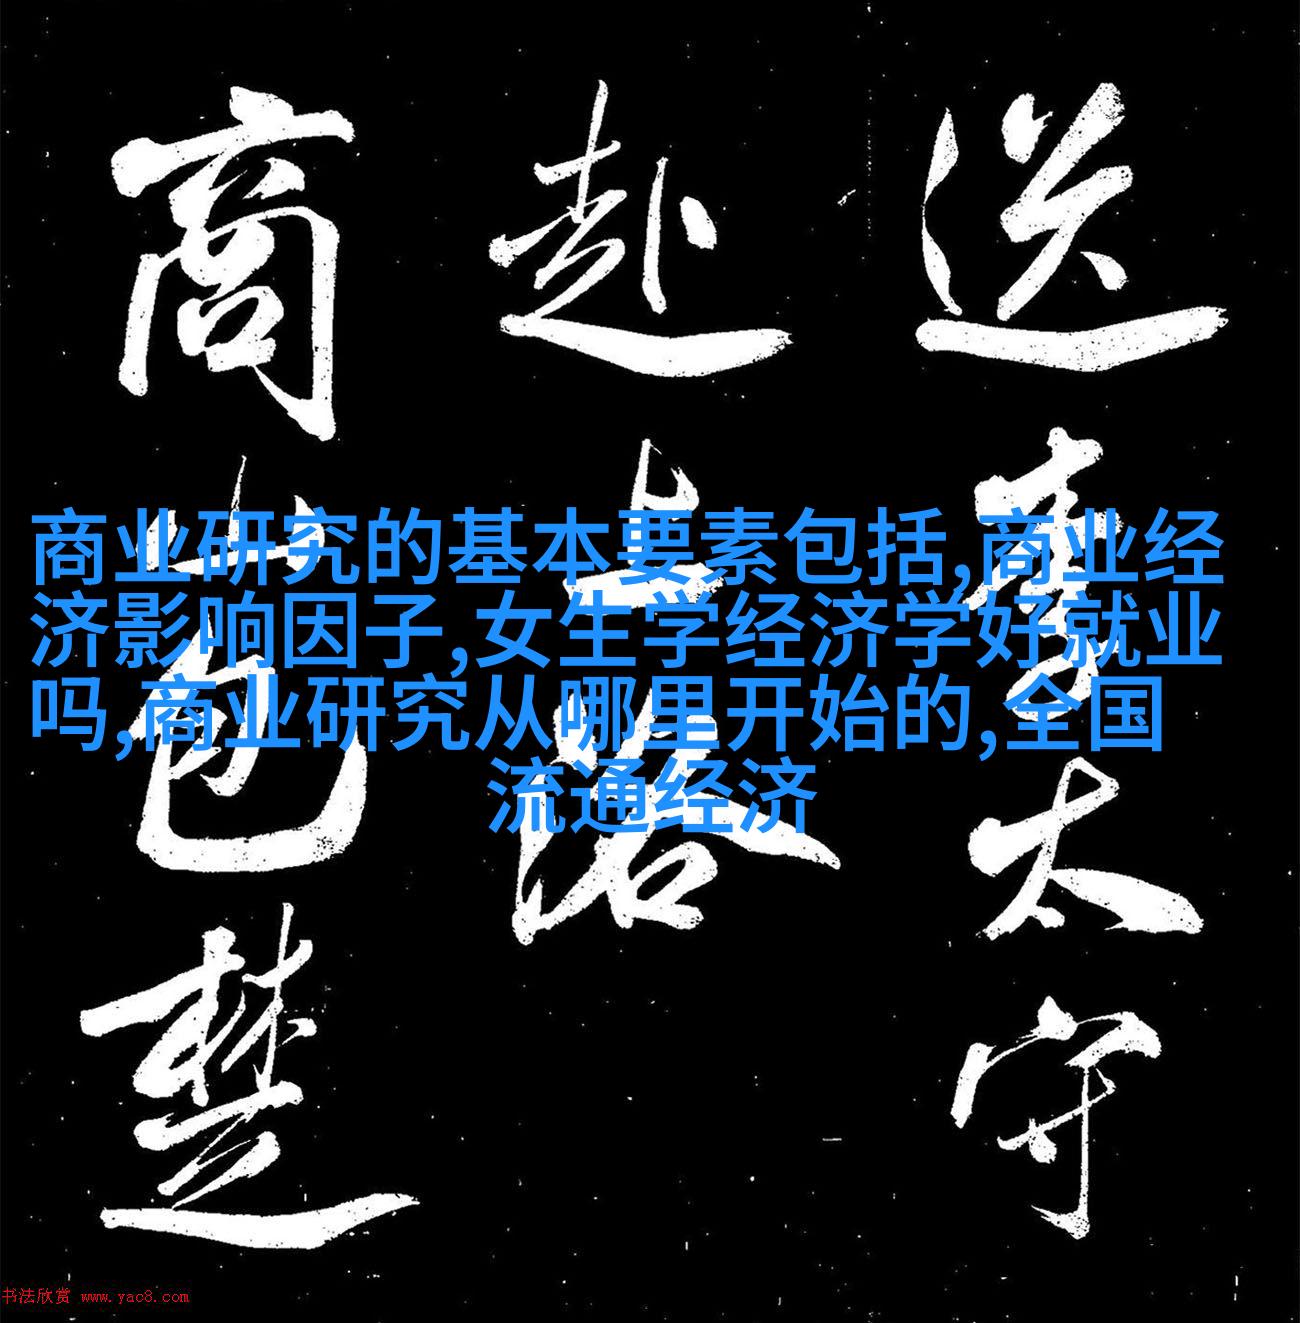 送李太守
赴上洛
商山包楚
商业研究的基本要素包括,商业经
济影响因子,女生学经济学好就业
吗,商业研究从哪里开始的,全国
流通经济
书法欣赏 www.yac8.com